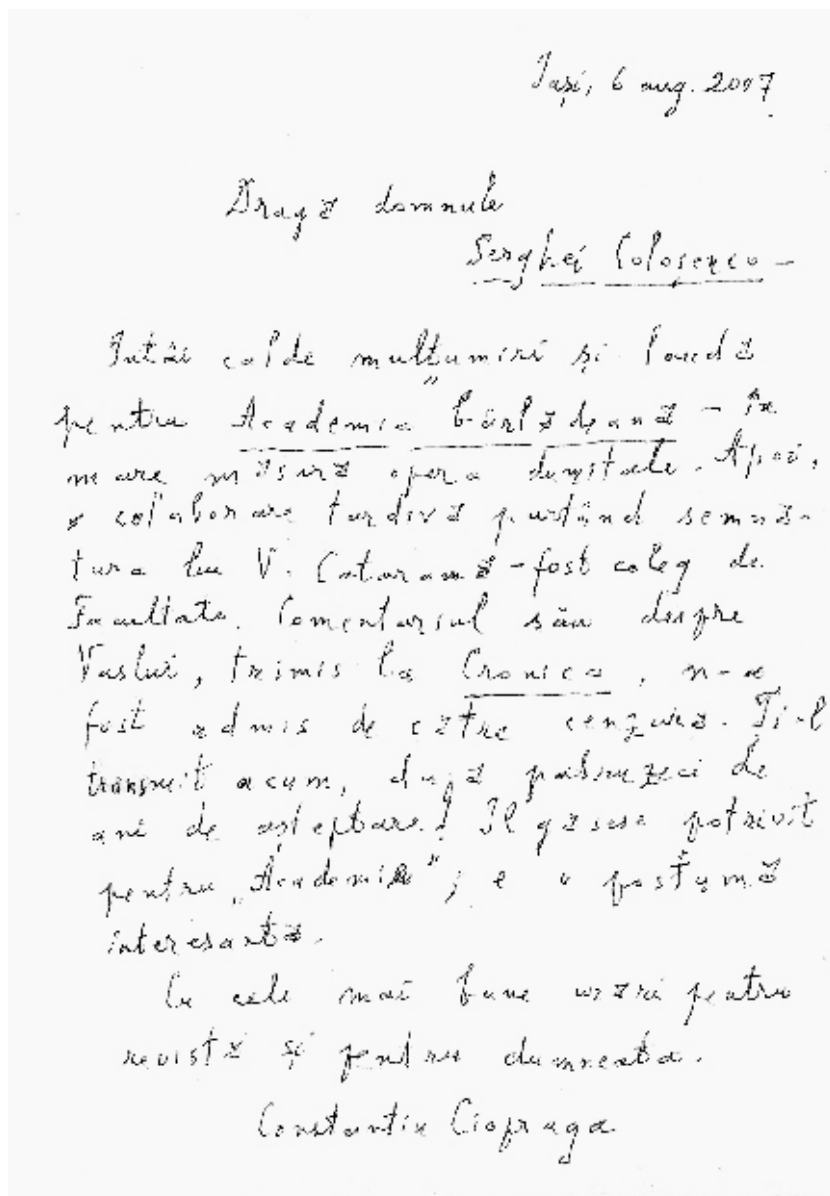 Iași, 6 aug. 2007
Dragă domnule
Serghei Coloșenco –
Întâi calde mulțumiri și laudă
pentru Academia bârlădeană – în
mare măsură opera dumitale. Apoi,
o colaborare tardivă purtând semnă-
tura lui V. Cataramă – fost coleg de
Facultate. Comentariul său despre
Vaslui, trimis la Cronica, n-a
fost admis de către cenzură. Ți-l
transmit acum, după patruzeci de
ani de așteptare! Îl găsesc potrivit
pentru „Academia"; e o postumă
interesantă.
Cu cele mai bune urări pentru
revistă și pentru dumneata.
Constantin Ciopraga